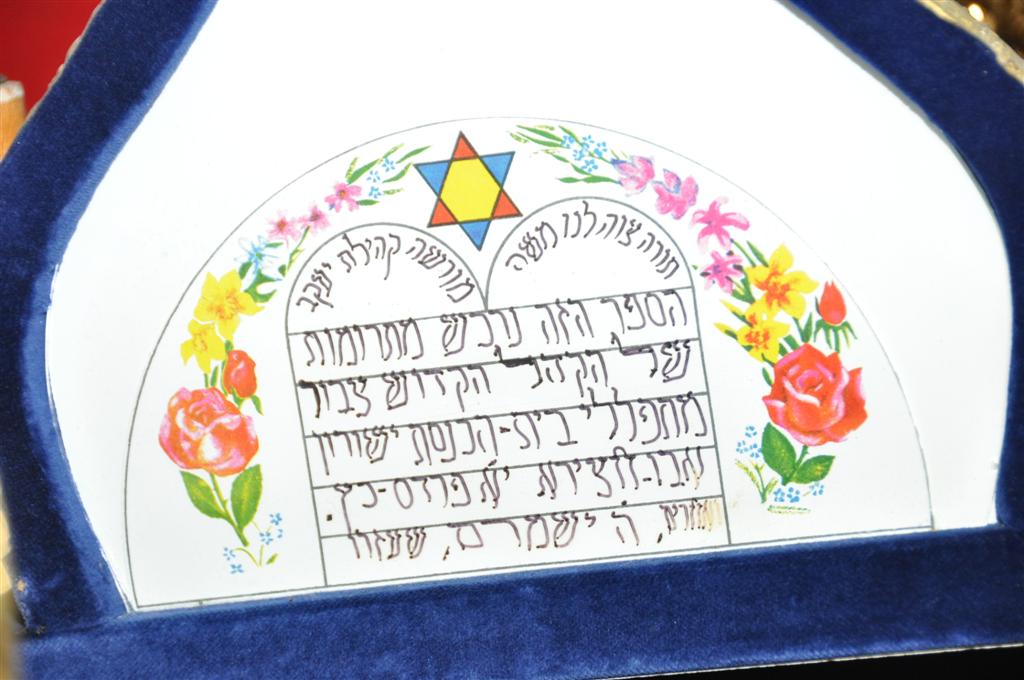 תורה צוה לנו משה
מורשה קהילת יעקב
הספר הזה נרכש מתרומות
של הקהל הקדוש צבור
מתפללי בית-הכנסת ישורון
פרדס-כץ.
ה' ישמרם,